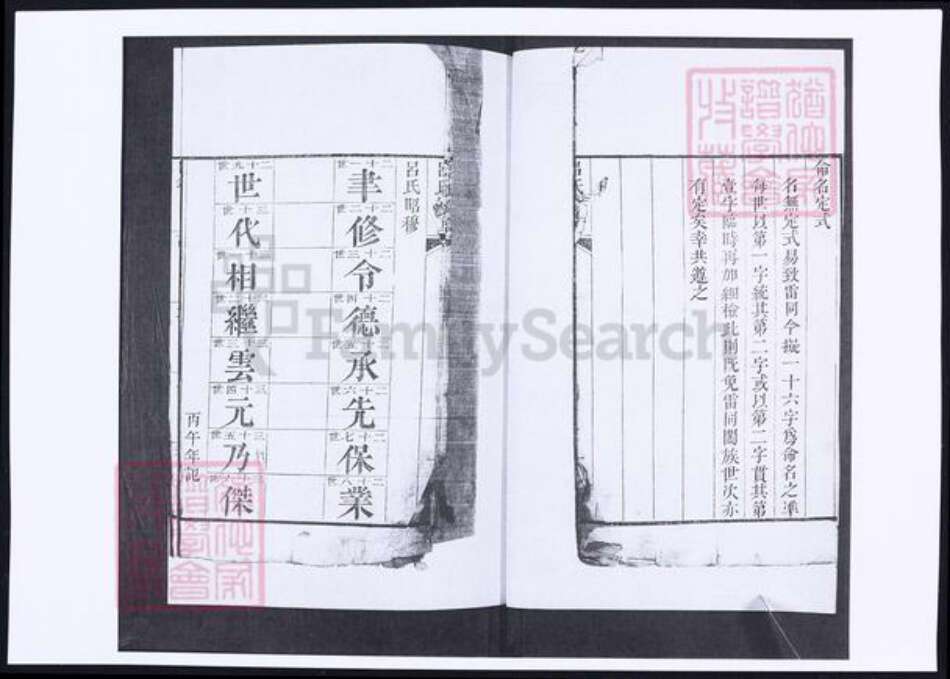 命名定式
名無定式易致雷同今擬一十六字為命名之準
每世以第一字統其第二字或以第二字貫其第
壹字臨時再加細檢此則既免雷同闔族世次亦
有定矣幸共遵之
呂氏
呂氏昭穆
二十一世
聿
二十二世
修
二十三世
令
二十四世
德
承
二十六世
先
二十七世
保
二十八世
業
二十九世
世
三十世
代
相
繼
雲
三十四世
元
三十五世
乃
傑
丙午年記
FamilySearch